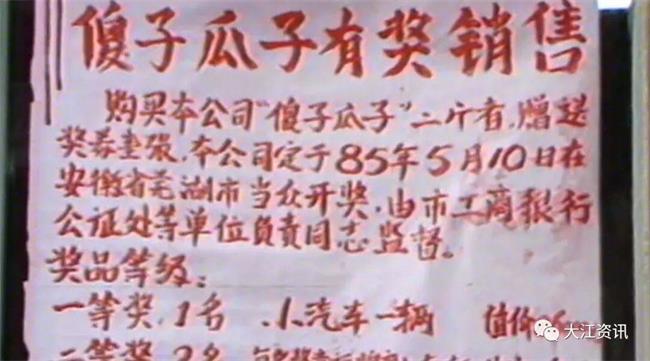 傻子瓜子有奖销售
购买本公司“傻子瓜子”二斤者,赠送
奖券壹張,本公司定于85年5月10日在
安徽省芜湖市当众开奖,由市工商银行
公证处等单位负责同志监督。
奖品等级:
一等奖,1名 小汽车一辆 值价
二等奖 2名
大江资讯